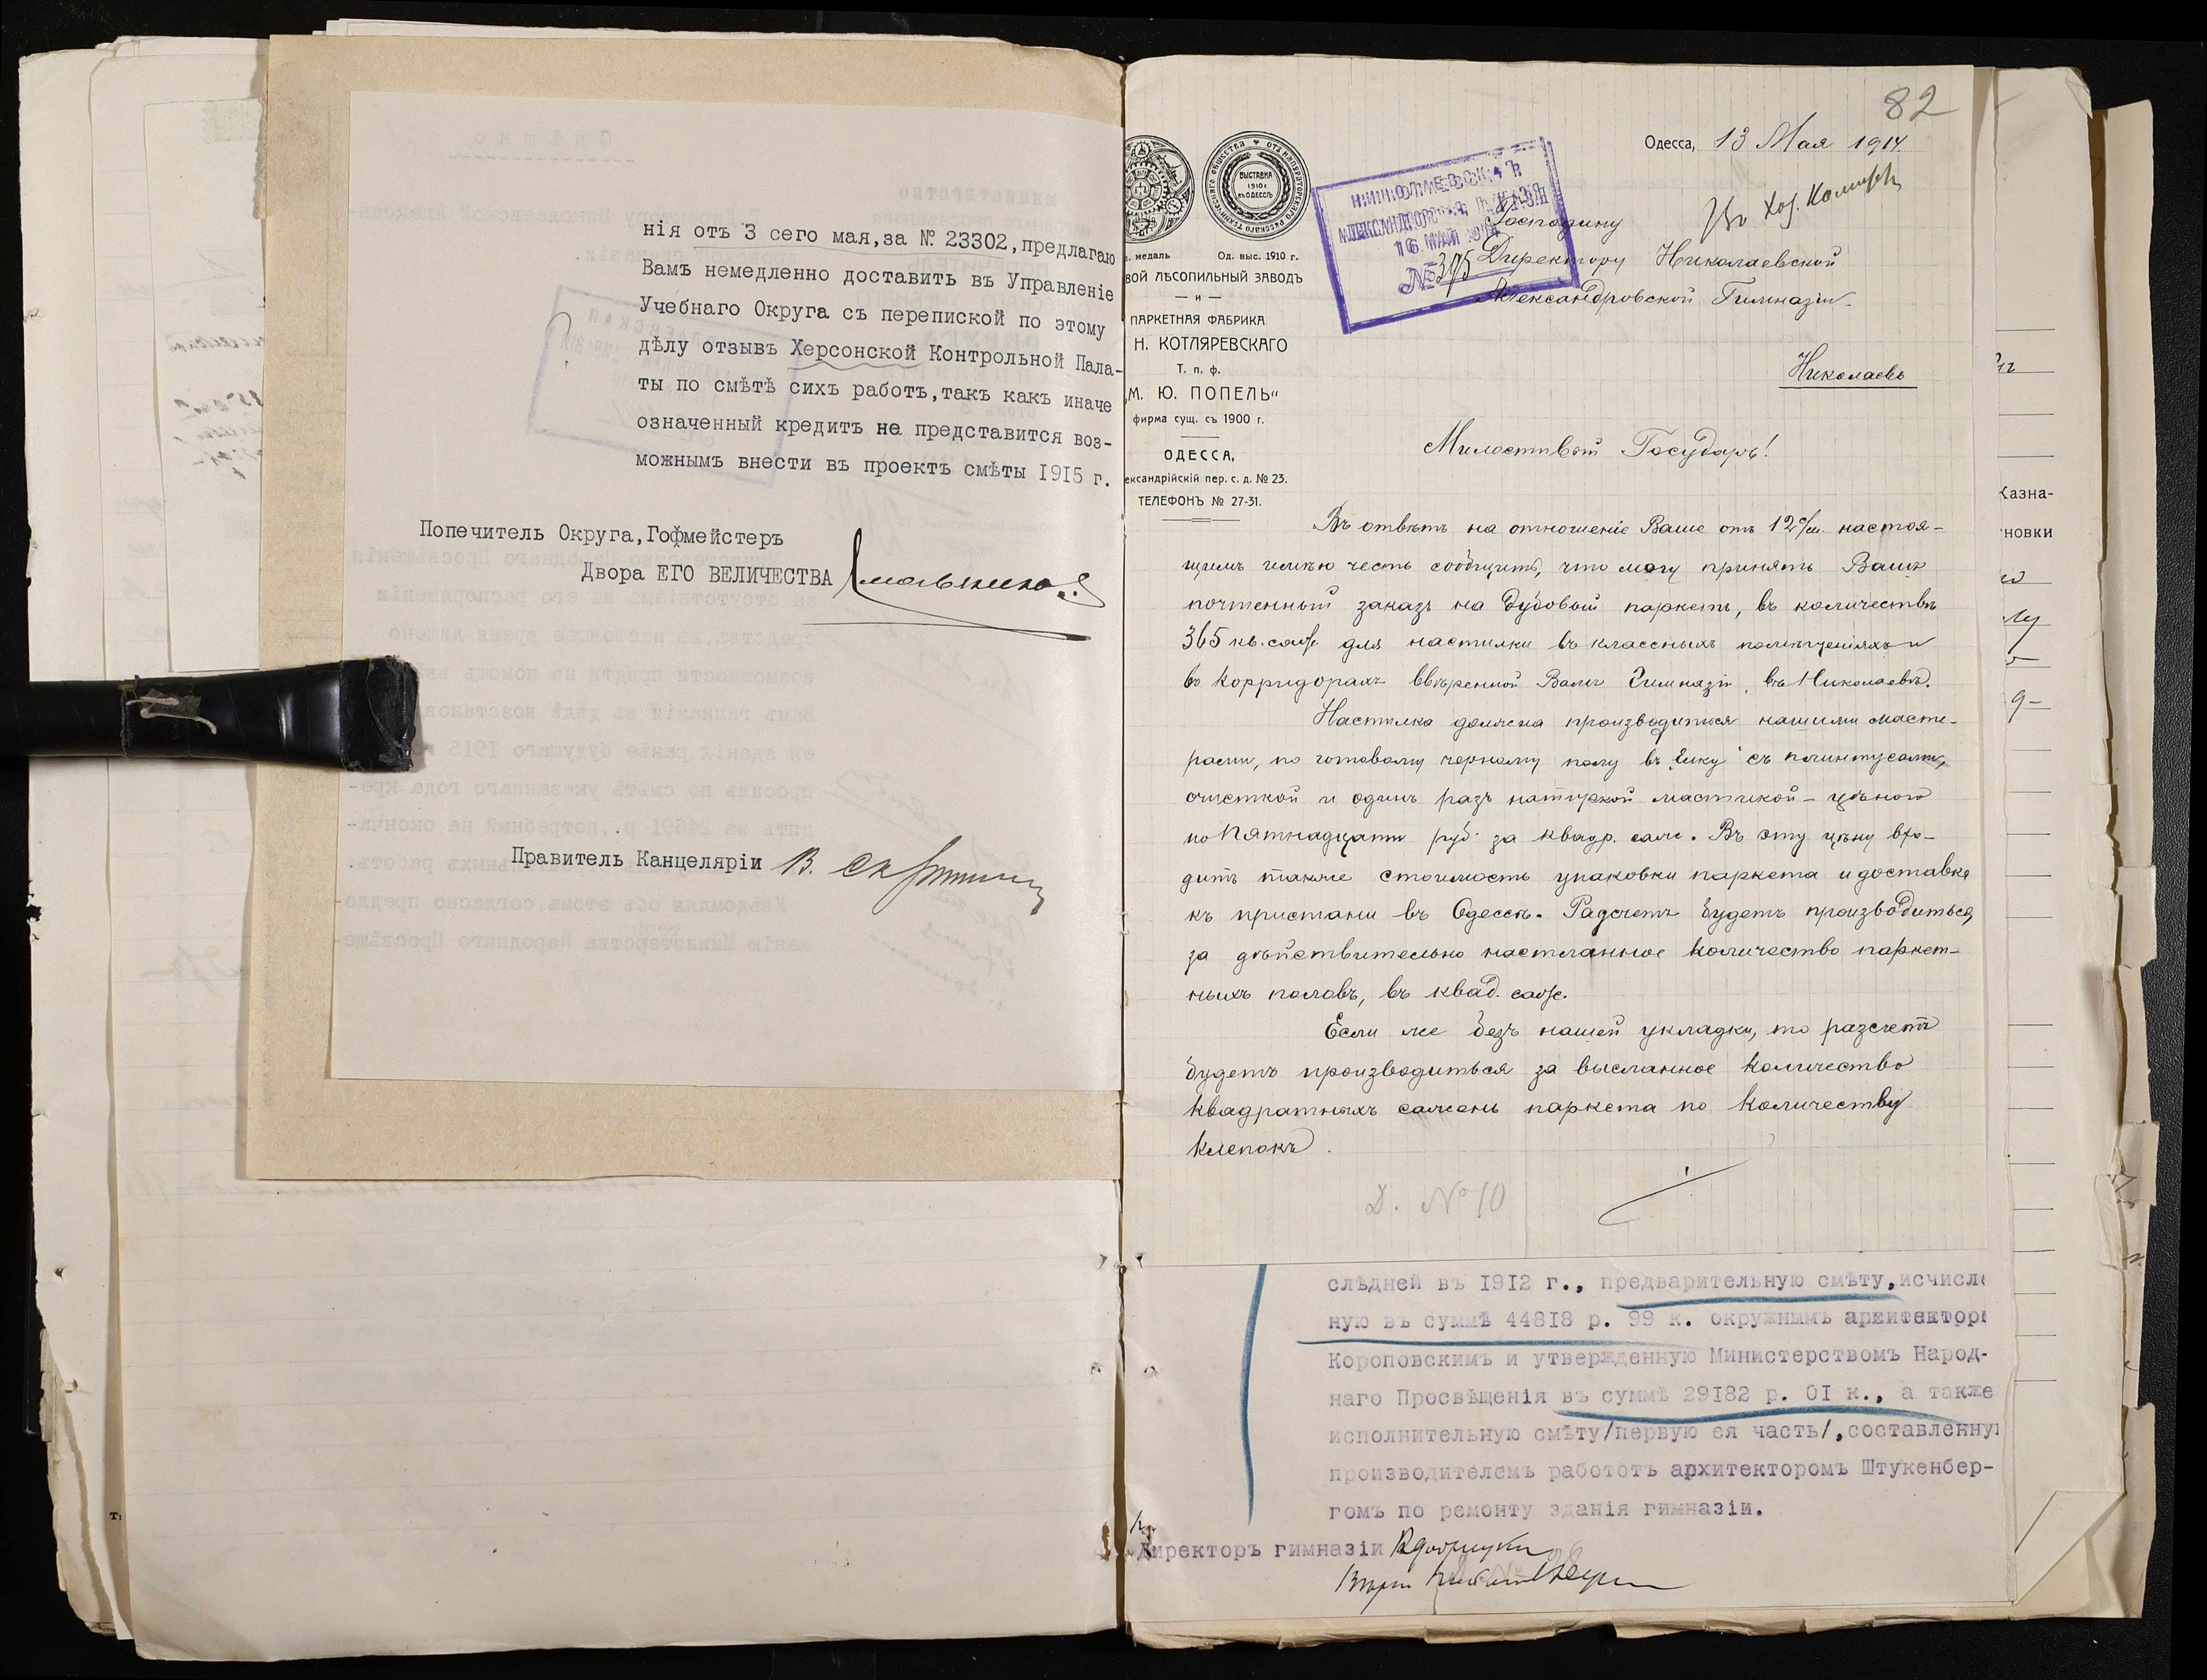 нія отъ 3 сего мая, за № 23302, предлагаю
Вамъ немедленно доставить въ Управленіе
Учебнаго Округа съ перепиской по этому
дѣлу отзывъ Херсонской Контрольной Пала-
ты по смѣтѣ сихъ работъ, такъ какъ иначе
означенный кредитъ не представится воз-
можнымъ внести въ проектъ смѣты 1915 г.
Попечитель Округа, Гофмейстеръ
Двора ЕГО ВЕЛИЧЕСТВА
Правитель Канцеляріи В.
82
Одесса, 13 Мая 1914
ВЫСТАВКА
1910 г.
ВЪ ОДЕССѢ
медаль Од. выс. 1910 г.
вой ЛѢСОПИЛЬНЫЙ ЗАВОДЪ
— и —
ПАРКЕТНАЯ ФАБРИКА
Н. КОТЛЯРЕВСКАГО
Т. п. ф.
„М. Ю. ПОПЕЛЬ“
фирма сущ. съ 1900 г.
ОДЕССА,
ександрійскій пер. с. д. № 23.
ТЕЛЕФОНЪ № 27-31.
16 МАЙ
№ 395
Господину
Директору Николаевской
Александровской Гимназіи
Николаевъ
Милостивый Государь!
Въ отвѣтъ на отношеніе Ваше отъ 12 с/м. настоя-
щимъ имѣю честь сообщить, что могу принять Вашъ
почтенный заказъ на дубовый паркетъ, въ количествѣ
365 кв. саж. для настилки въ классныхъ помѣщеніяхъ и
въ корридорахъ ввѣренной Вамъ Гимназіи, въ Николаевѣ.
Настилка должна производиться нашими масте-
рами, по готовому черному полу въ „елку“ съ плинтусами,
очисткой и одинъ разъ натиркой мастикой – цѣною
по пятнадцати руб. за квадр. саж. Въ эту цѣну вхо-
дитъ также стоимость упаковки паркета и доставка
къ пристани въ Одессѣ. Разсчетъ будетъ производиться,
за дѣйствительно настланное количество паркет-
ныхъ половъ, въ квад. саж.
Если же безъ нашей укладки, то разсчетъ
будетъ производиться за высланное количество
квадратныхъ сажень паркета по количеству
клепокъ.
Д. № 10
слѣдней въ 1912 г., предварительную смѣту, исчисле
ную въ суммѣ 44818 р. 99 к. окружнымъ архитектор
Короповскимъ и утвержденную Министерствомъ Народ-
наго Просвѣщенія въ суммѣ 29182 р. 01 к., а также
исполнительную смѣту/первую ея часть/, составленну
производителемъ работотъ архитекторомъ Штукенбер-
гомъ по ремонту зданія гимназіи.
Директоръ гимназіи
Казна-
новки